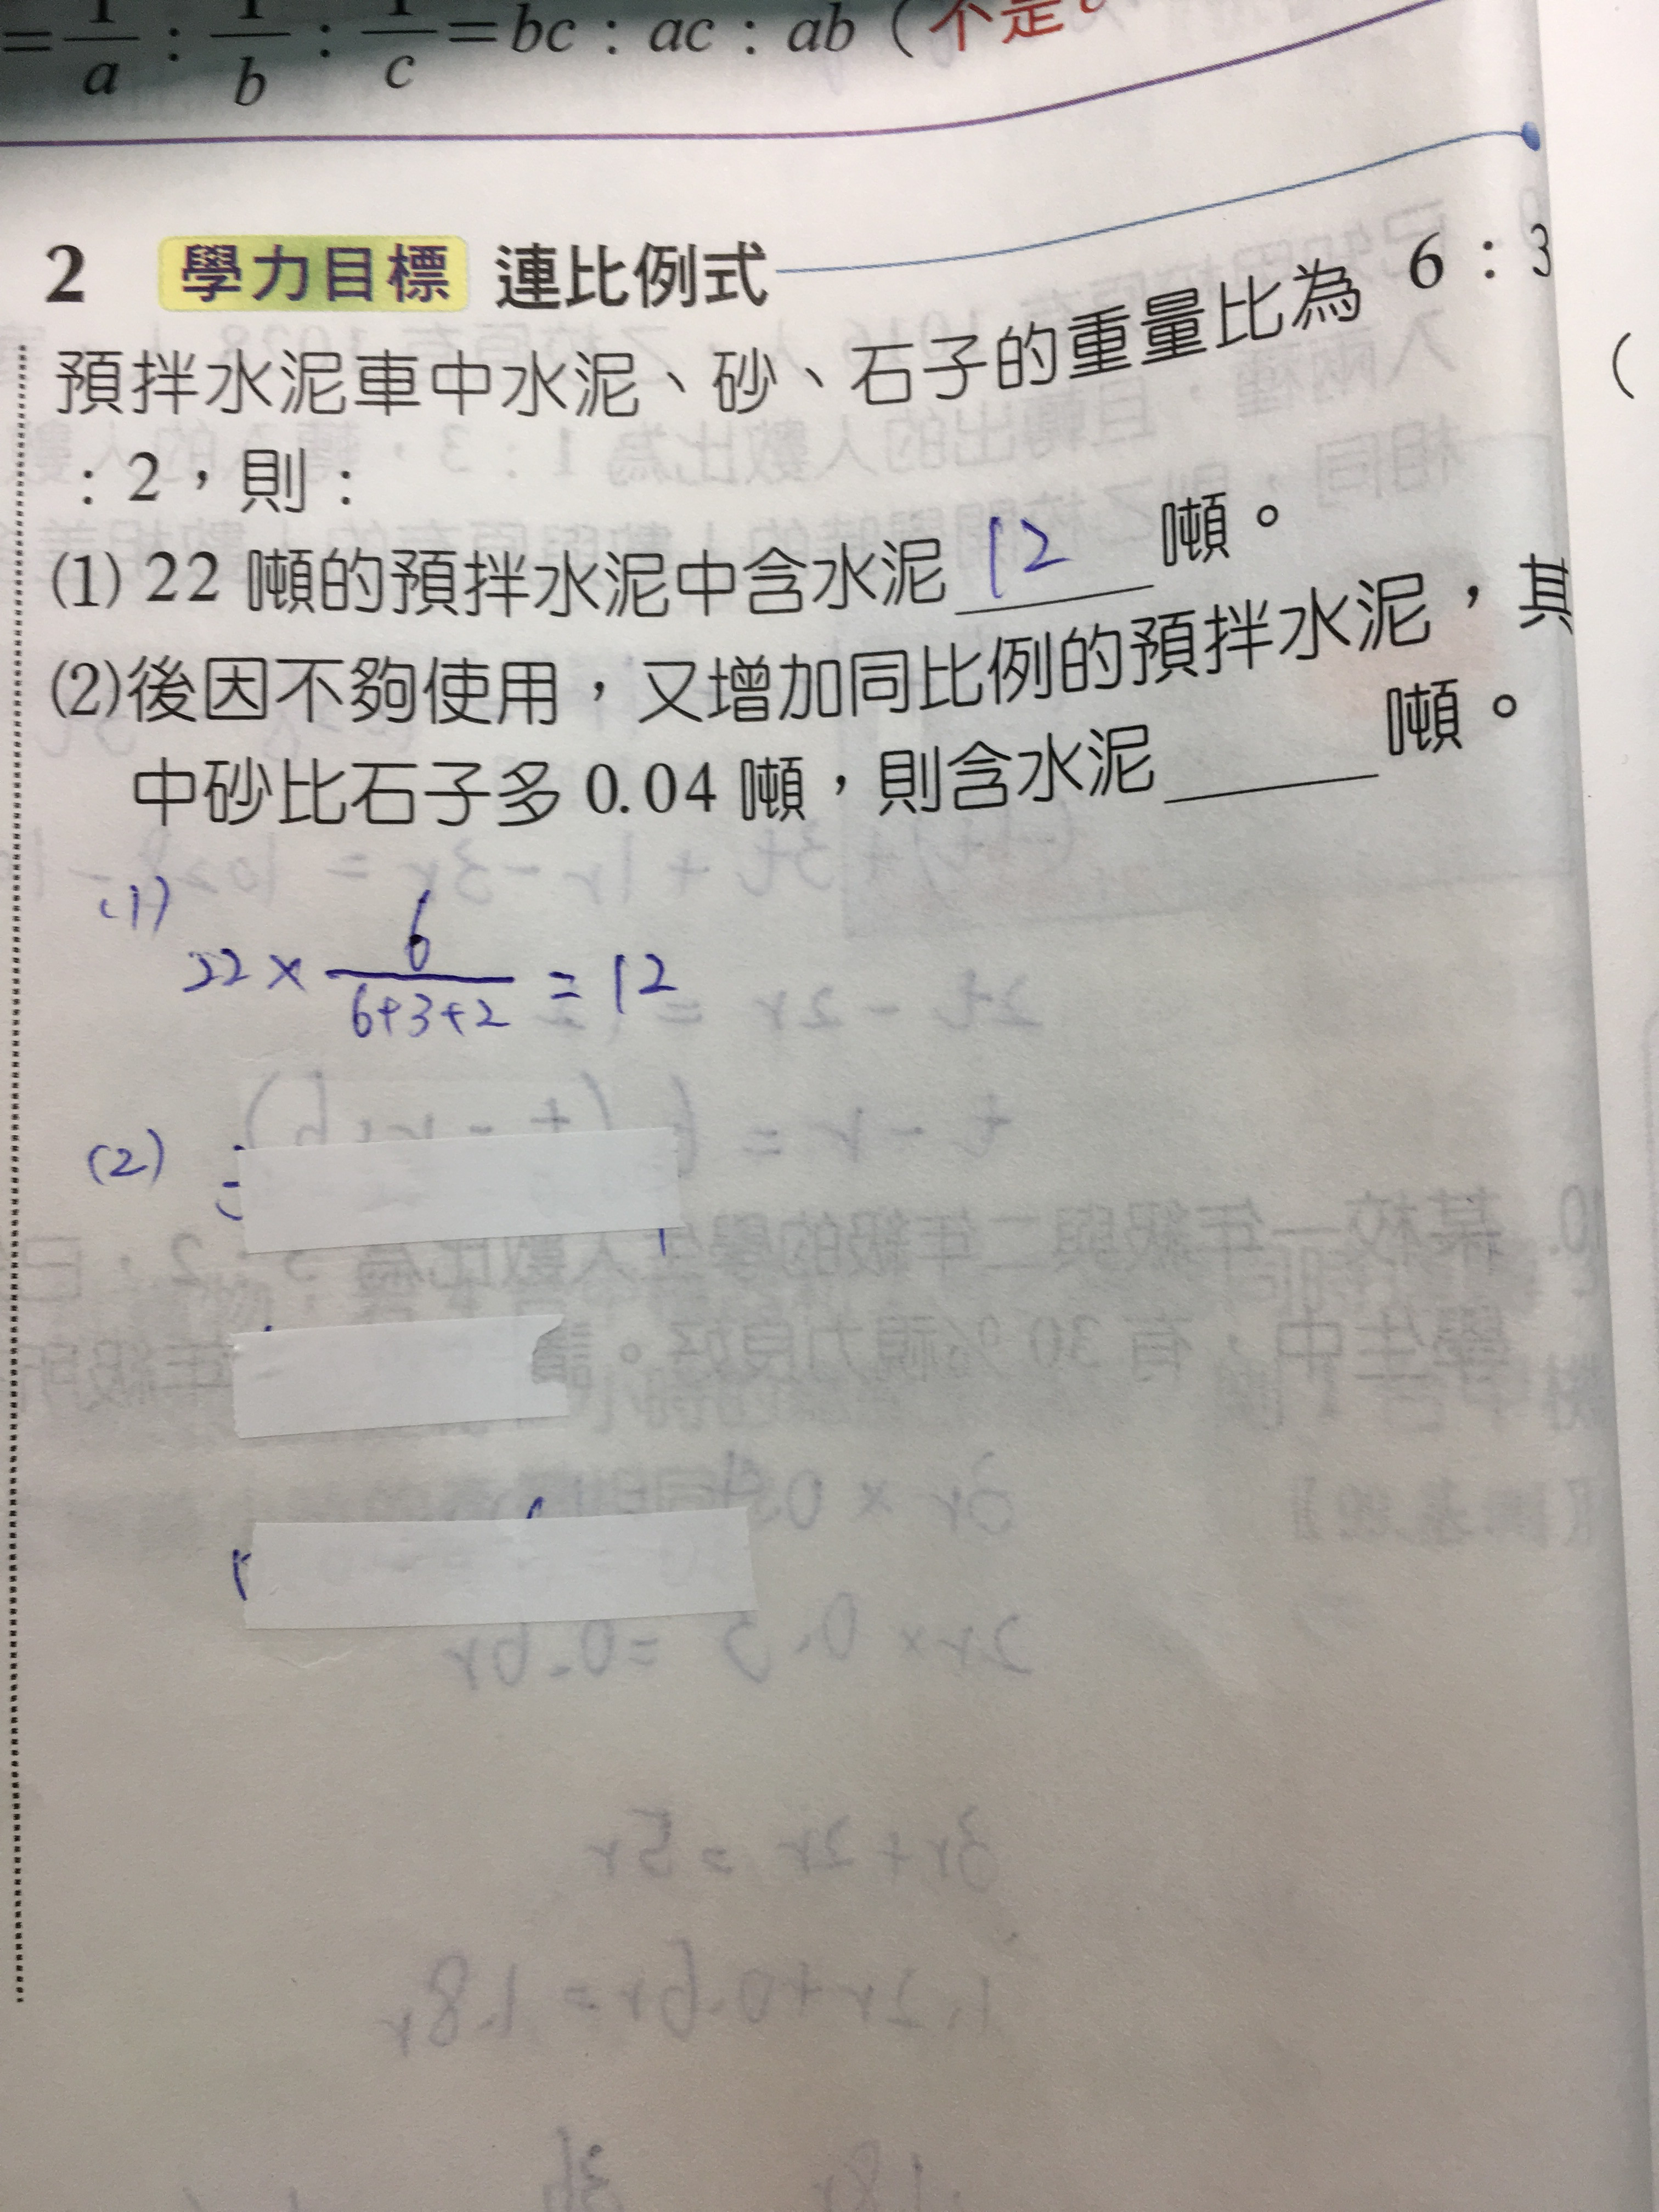 = 1/a : 1/b : 1/c = bc : ac : ab (不是
2 學力目標 連比例式
預拌水泥車中水泥、砂、石子的重量比為 6 : 3
: 2,則:
(1) 22 噸的預拌水泥中含水泥 12 噸。
(2)後因不夠使用,又增加同比例的預拌水泥,其
中砂比石子多 0.04 噸,則含水泥______噸。
(1)
22 × 6/(6+3+2) = 12
(2)